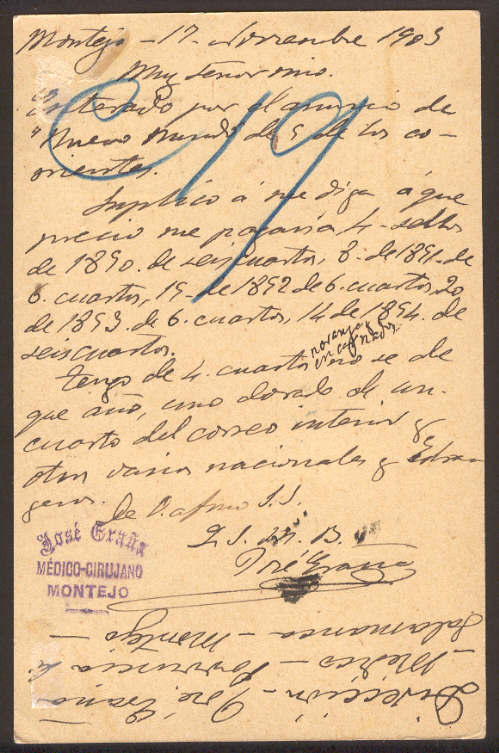 Montejo - 17 - Novienbre 1903
Muy Señor mio.
Enterado por el anuncio de
"Nuevo Mundo de 5 de los co-
rrientes.
Suplico á me diga á que
precio me pagaria 4 - sellos
de 1890. de seis cuartos, 8. de 1891. de
6. cuartos, 19. de 1892 de 6. cuartos, 20
de 1893. de 6. cuartos, 14 de 1894. de
seis cuartos. naranja y
encarnados
Tengo de 4. cuartos no se de
que año, uno dorado de un
cuarto del correo interior y
otros varios nacionales y Estran
geros.
De V. afmo S. S.
Q. S. M. B.
José Graña
José Graña
MÉDICO-CIRUJANO
MONTEJO
Dirección - José Graña -
- Medico - Provincia de
Salamanca - Montejo -
C/19